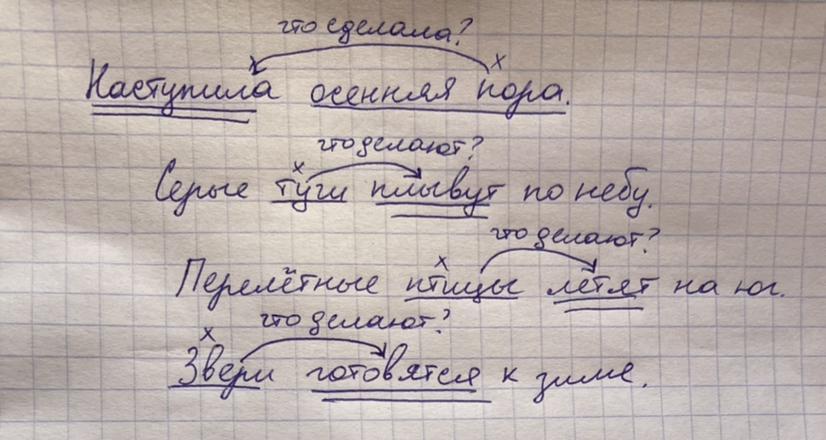 что сделала?
Наступила осенняя пора.
что делают?
Серые тучи плывут по небу.
что делают?
Перелётные птицы летят на юг.
что делают?
Звери готовятся к зиме.